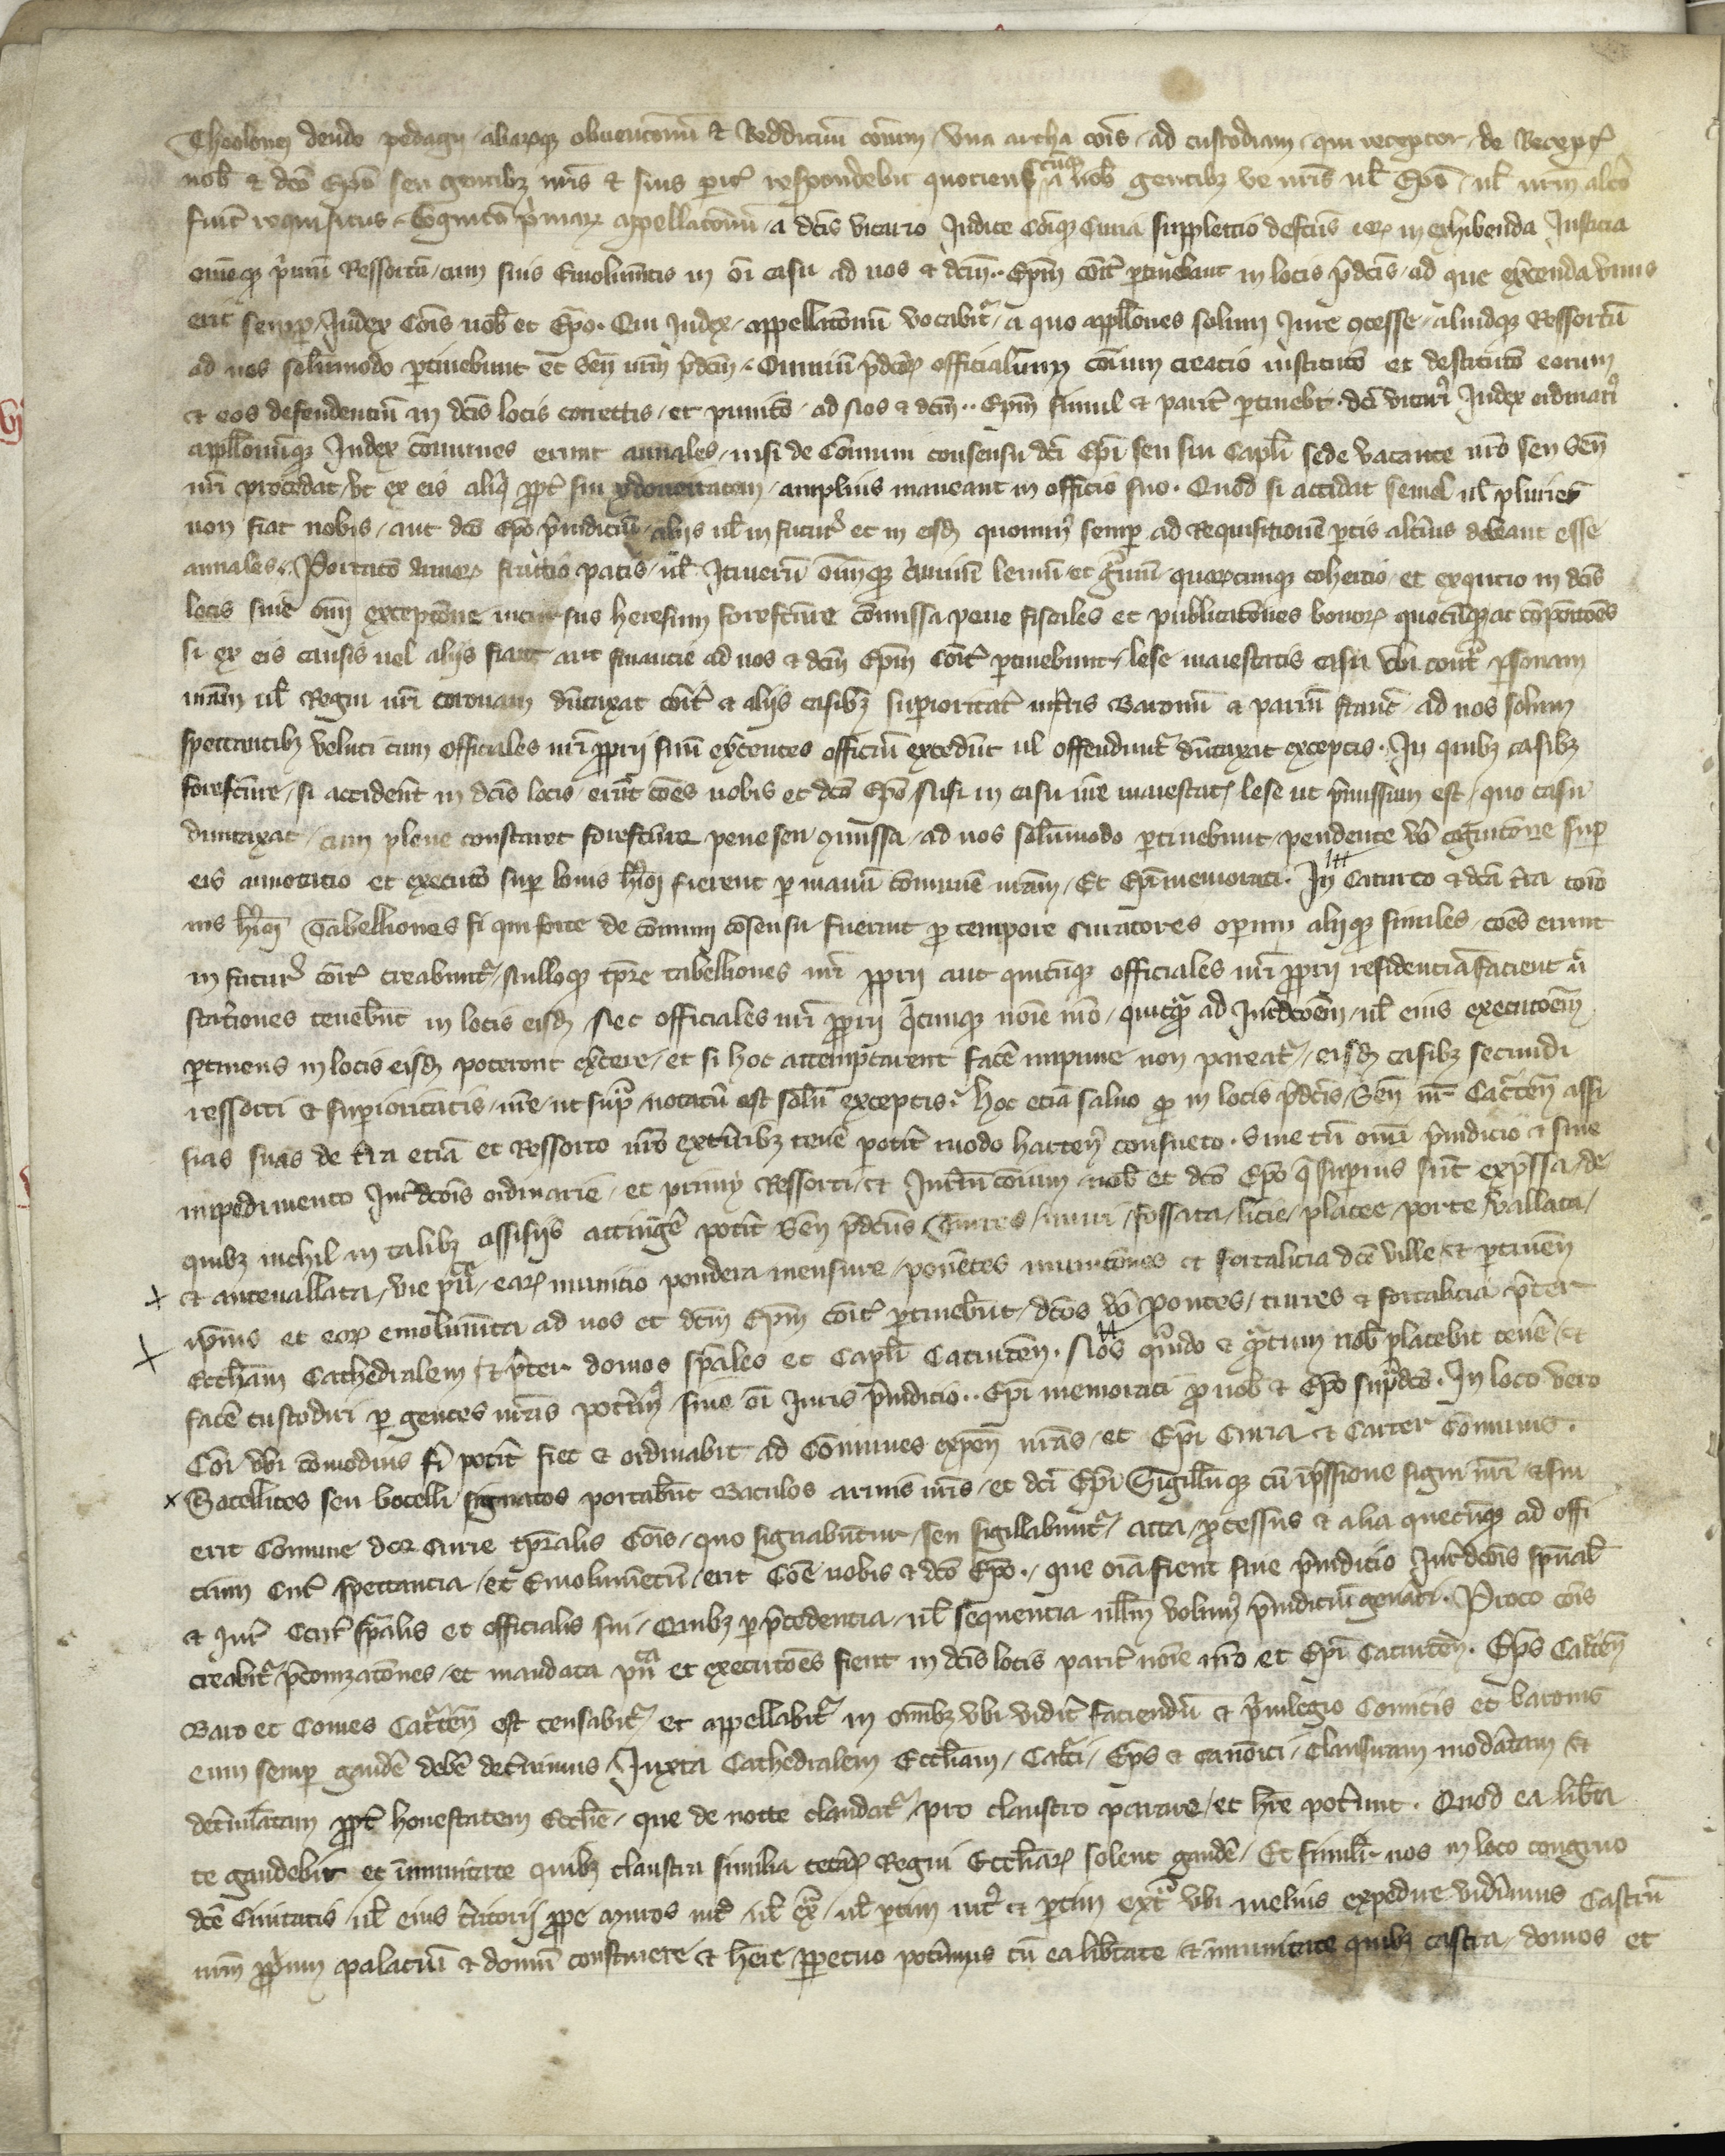 Theolonei dendo pedagii aliarumque obvencionum et Reddituum comm una archa cois ad custodiam qui receptor de Recept
nob et dco Epo seu gentibz nris et suis pit respondebit quociens cuqz a nob gentibz ve nris ul Epo ul nrm alto
fuit requisitus Cognitio pmar appellaconu a dcis vicario Judice Coiqz Curia supplectio defectus eor in exhibenda Justicia
omeqz pmu Ressortu cum suis Emolumtis in oi casu ad nos et dcm Epm coit ptinebant in locis pdcis ad que exercenda unus
erit semp Judex Cois nob et Epo Qui Judex appellaconu vocabit a quo appllones solum Jure cesse aliudqz Ressortu
ad nos solumodo ptinebunt et Sen nrm pdcm Omniu pdcor officialium coium creacio institucio et destitucio eorum
et eos defendentiu in dcis locis correctis et punicio ad Nos et dcm Epm simul et parit ptinebt dci vicari Judex ordinari
appllonuqz Judex comunes erunt annales nisi de Comuni consensu dci Epi seu sui Capli sede vacante nro seu Sen
nri procedat ut ex eis aliq ppt sui ydoneitatem amplius maneant in officio suo Quod si accidat semel ul pluries
non fiat nobis aut dco Epo piudiciu aliis ul in futur et in eisd quomin semp ad Requisitione ptis altius debeant esse
annales Portacio armor fractio pacis ul Itineru omnqz criminu leuiu et gniu quorcunqz cohercio et exqucio in dcis
locis sine omi excepcone incursus heresum forefcure comissa pene fiscales et publicacones bonor quocuqz at composicoes
si ex eis causis uel aliis fiant aut financie ad nos et dcm Epm Coit ptinebunt lese maiestatis casu ubi cont psonam
nram ul Regni nri coronam dutaxat coit et aliis casibz supioritat nris Baronu a pariu Franc ad nos solum
spectantibz veluti cum officiales nri pprii suu exercentes officiu excedut ul offendunt dutaxat exceptis In quibz casibz
forefcure si accident in dcis locis erut coes nobis et dco Epo Nisi in casu ure maiestat lese ut pmissum est quo casu
duntaxat cum plene constaret forefcure pene seu comissa ad nos solumodo ptinebunt pendente uo cognicone sup
eis annotacio et execucio sup bonis hmoi fierent p manu comune nram Et Epi memorati In Caturco et dca tra toto
ius hmoi Tabelliones si qui forte de comuni cosensu fuerint p tempore curatores operum aliiqz similes coes erunt
in futur coit creabunt Nulloqz tpre tabelliones nri pprii aut quicuqz officiales nri pprii residencia facient
staciones tenebut in locis eisd Nec officiales nri pprii qcunqz noie nro quicq ad Jurdcoem ul eius execucoem
ptinens in locis eisd poterunt exercere et si hoc attemptarent facere impune non pareat eisd casibz secundi
ressorti et supioritatis ure ut sup notatu est solu exceptis hoc etia saluo q in locis pdcis Sen nr Catcen assi
sias suas de tra etia et Ressorto nro extibz tene potit modo hacten consueto Sine tn omi piudicio et sine
impedimento Jurdcois ordinarie et primi Ressorti et Jurm coium nob et dco Epo q supius sut expssa de
quibz nichil in talibz assisiis attinge potit Sen pdcus Turres muri fossata licie platee porte vallata
et antevallata vie puce ear municio pondera mensure ponetes municones et fortalicia dce ville et ptinen
ipius et eor emolumta ad nos et dcm Epm coit ptinebut dcos uo Pontes turres et fortalicia pter
Eccliam Cathedralem et pter domos spales et Capli Caturcen Nos qundo et qtum nob placebit tene et
face custodiri p gentes nras potim sine oi Juris piudicio Epi memorati p nob et Epo supdco In loco uero
Coi ubi comodius fi potit fiet et ordinabit ad Comunes expen nras et Epi Curia et Carcer Comunis
Satellites seu bocelli signatos portabut Baculos armis nris et dci Epi Sigilluqz cu ipssione signi nri et sui
erit Comune dce Curie tpralis Cois quo signabuntur seu sigillabunt acta processus et alia quecuqz ad offi
cium Cur spectancia et Emolumetu erit Coe nobis et dco Epo que oia fient sine piudicio Jurdcois spualis
et Jur Ccur spalis et officialis sui Quibz p pcedencia ul sequencia nllm volum piudiciu genari Preco cois
creabit pconizacones et mandata puca et execucoes fient in dcis locis parit noie nro et Epi Caturcen Eps Catcen
Baro et Comes Catcen est censabit et appellabit in omibz ubi vidit faciendu et pvilegio Comitis et baronis
eum semp gaude debe decnimus Juxta Cathedralem Eccliam Catci Eps et canoici clausuram modatam et
detmiatam ppt honestatem Ecclie que de nocte claudat pro claustro parare et hre potunt Quod ea liberta
te gaudebit et imunitate quibz claustra similia ceterar Regni Eccliar solent gaude Et simili nos in loco congruo
dce Ciuitatis ul eius territorii ppe muros int ul ex ul ptim int et ptim ext ubi melius expedire vidimus Castru
nrm pprium palaciu et domu construere et here ppetuo potimus cu ea libtate et imunitate quibz castra domos et